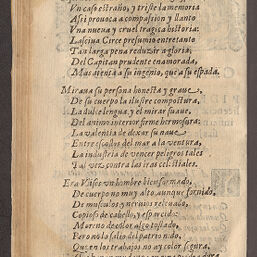 Vn caso estraño, y triste la memoria
Assi prouoca a compassion y llanto
Vna nueua y cruel tragica historia:
Lasciua Circe presumio entretanto
Tan larga pena reduzir a gloria,
Del Capitan prudente enamorada,
Mas atenta a su ingenio, que a su espada.
Miraua su persona honesta y graue,
De su cuerpo la ilustre compostura,
La dulce lengua, y el mirar suaue,
Del animo interior firme hermosura:
La valentia de dexar su naue
Entre escollos del mar a la ventura,
La industria de vencer peligros tales
Tal vez contra las iras celestiales.
Era Vlises vn hombre bien formado,
De cuerpo no muy alto, aunque fornido,
De musculos y neruios releuado,
Copioso de cabello, y esparcido:
Moreno de color algo tostado,
Pero no le salio del patrio nido,
Que en los trabajos no ay color segura,